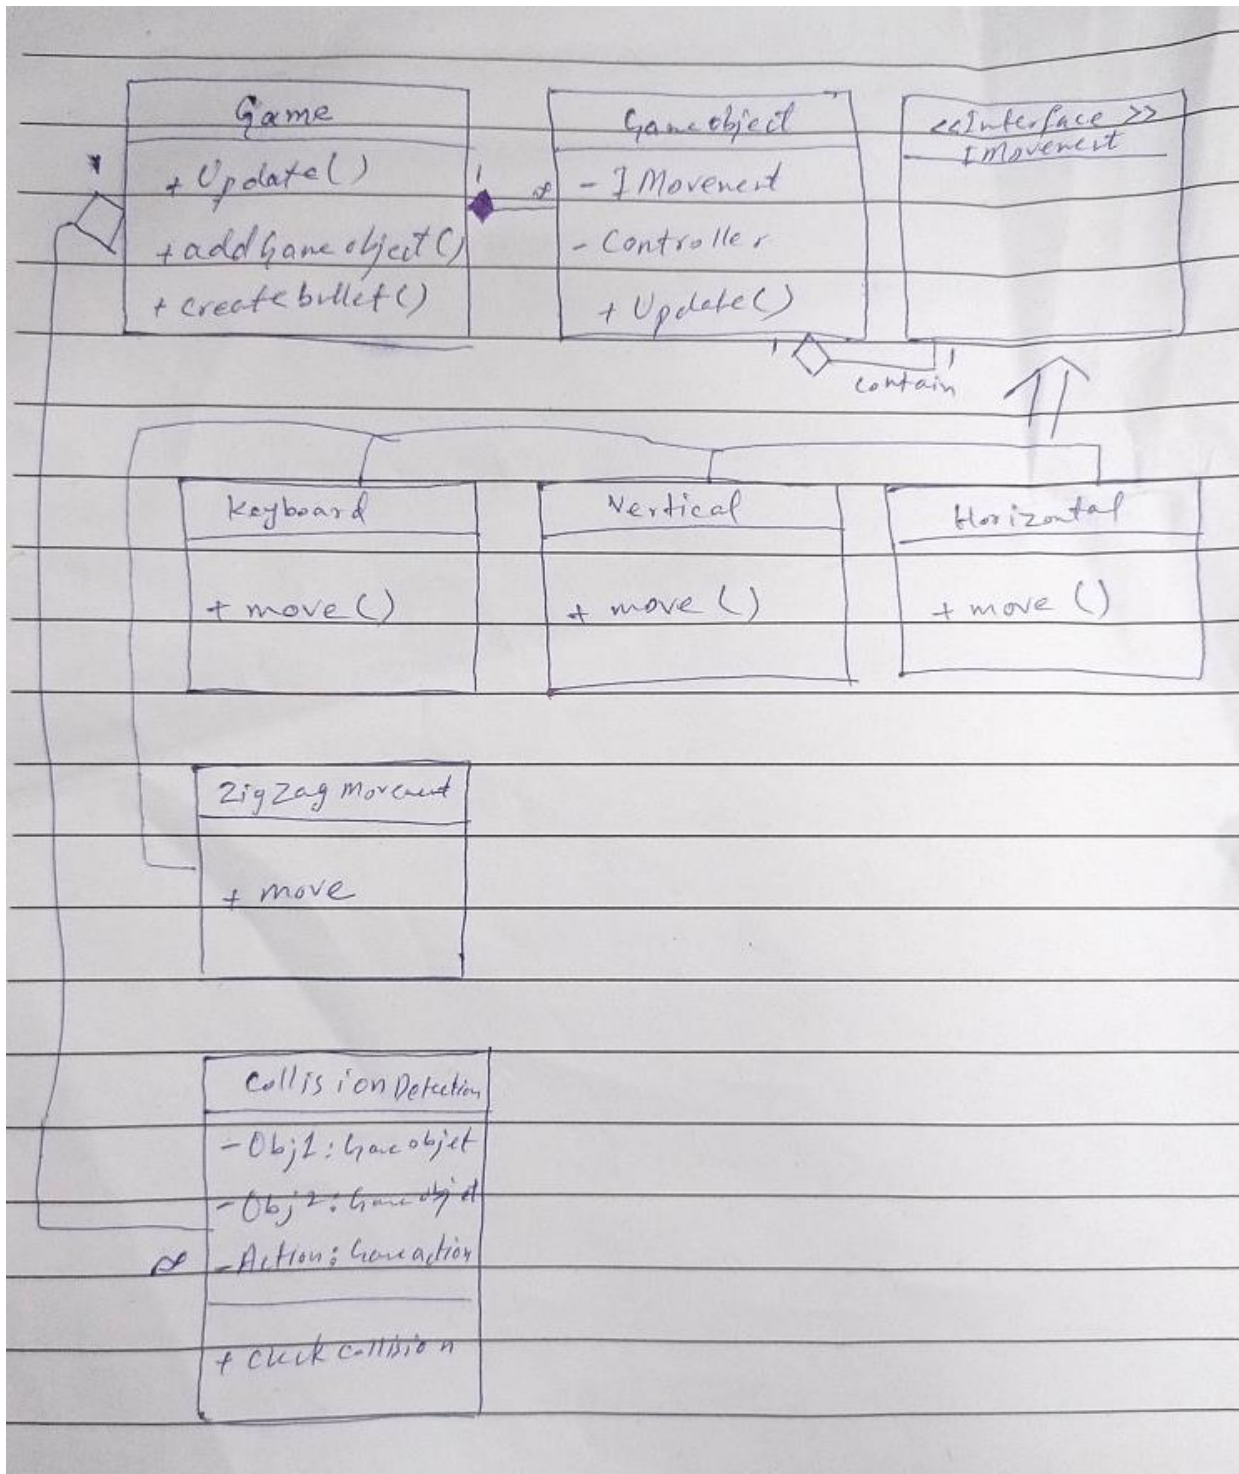 Game
+ Update()
+ addGameobject()
+ createbullet()
1
∞
Gameobject
- IMovement
- Controller
+ Update()
<<Interface>>
IMovement
1
1
contain
Keyboard
+ move()
Vertical
+ move()
Horizontal
+ move()
ZigZag Movement
+ move
Collision Detection
- Obj1: Gameobjet
- Obj2: Gameobjet
- Action: Gameaction
∞
+ Check collision